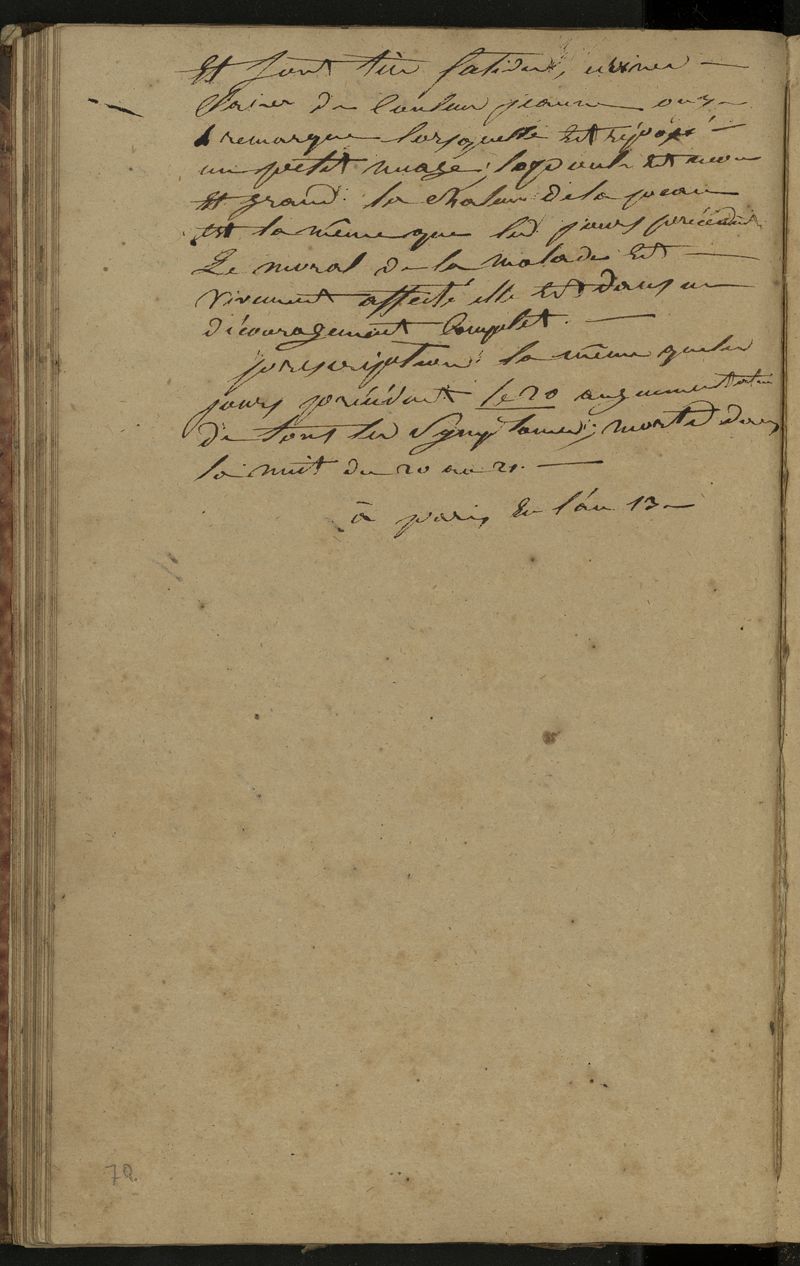 Et sont très fatides, urines —
Claires de Couleur jaune on y
remarque lorsquelle Est réposé —
un petit nuage, le pouls Est mou
Et grand. la chaleur dela peau
Est la même que les jours précédents
Le moral de la malade Est —
vivement affecté elle Est dans un
découragement Complet. —
prescription: la même que les
jours précédent le 20 augmentation
de tous les Symptomes; morte dans
la nuit du 20 au 21. —
à paris En l'an 13 —